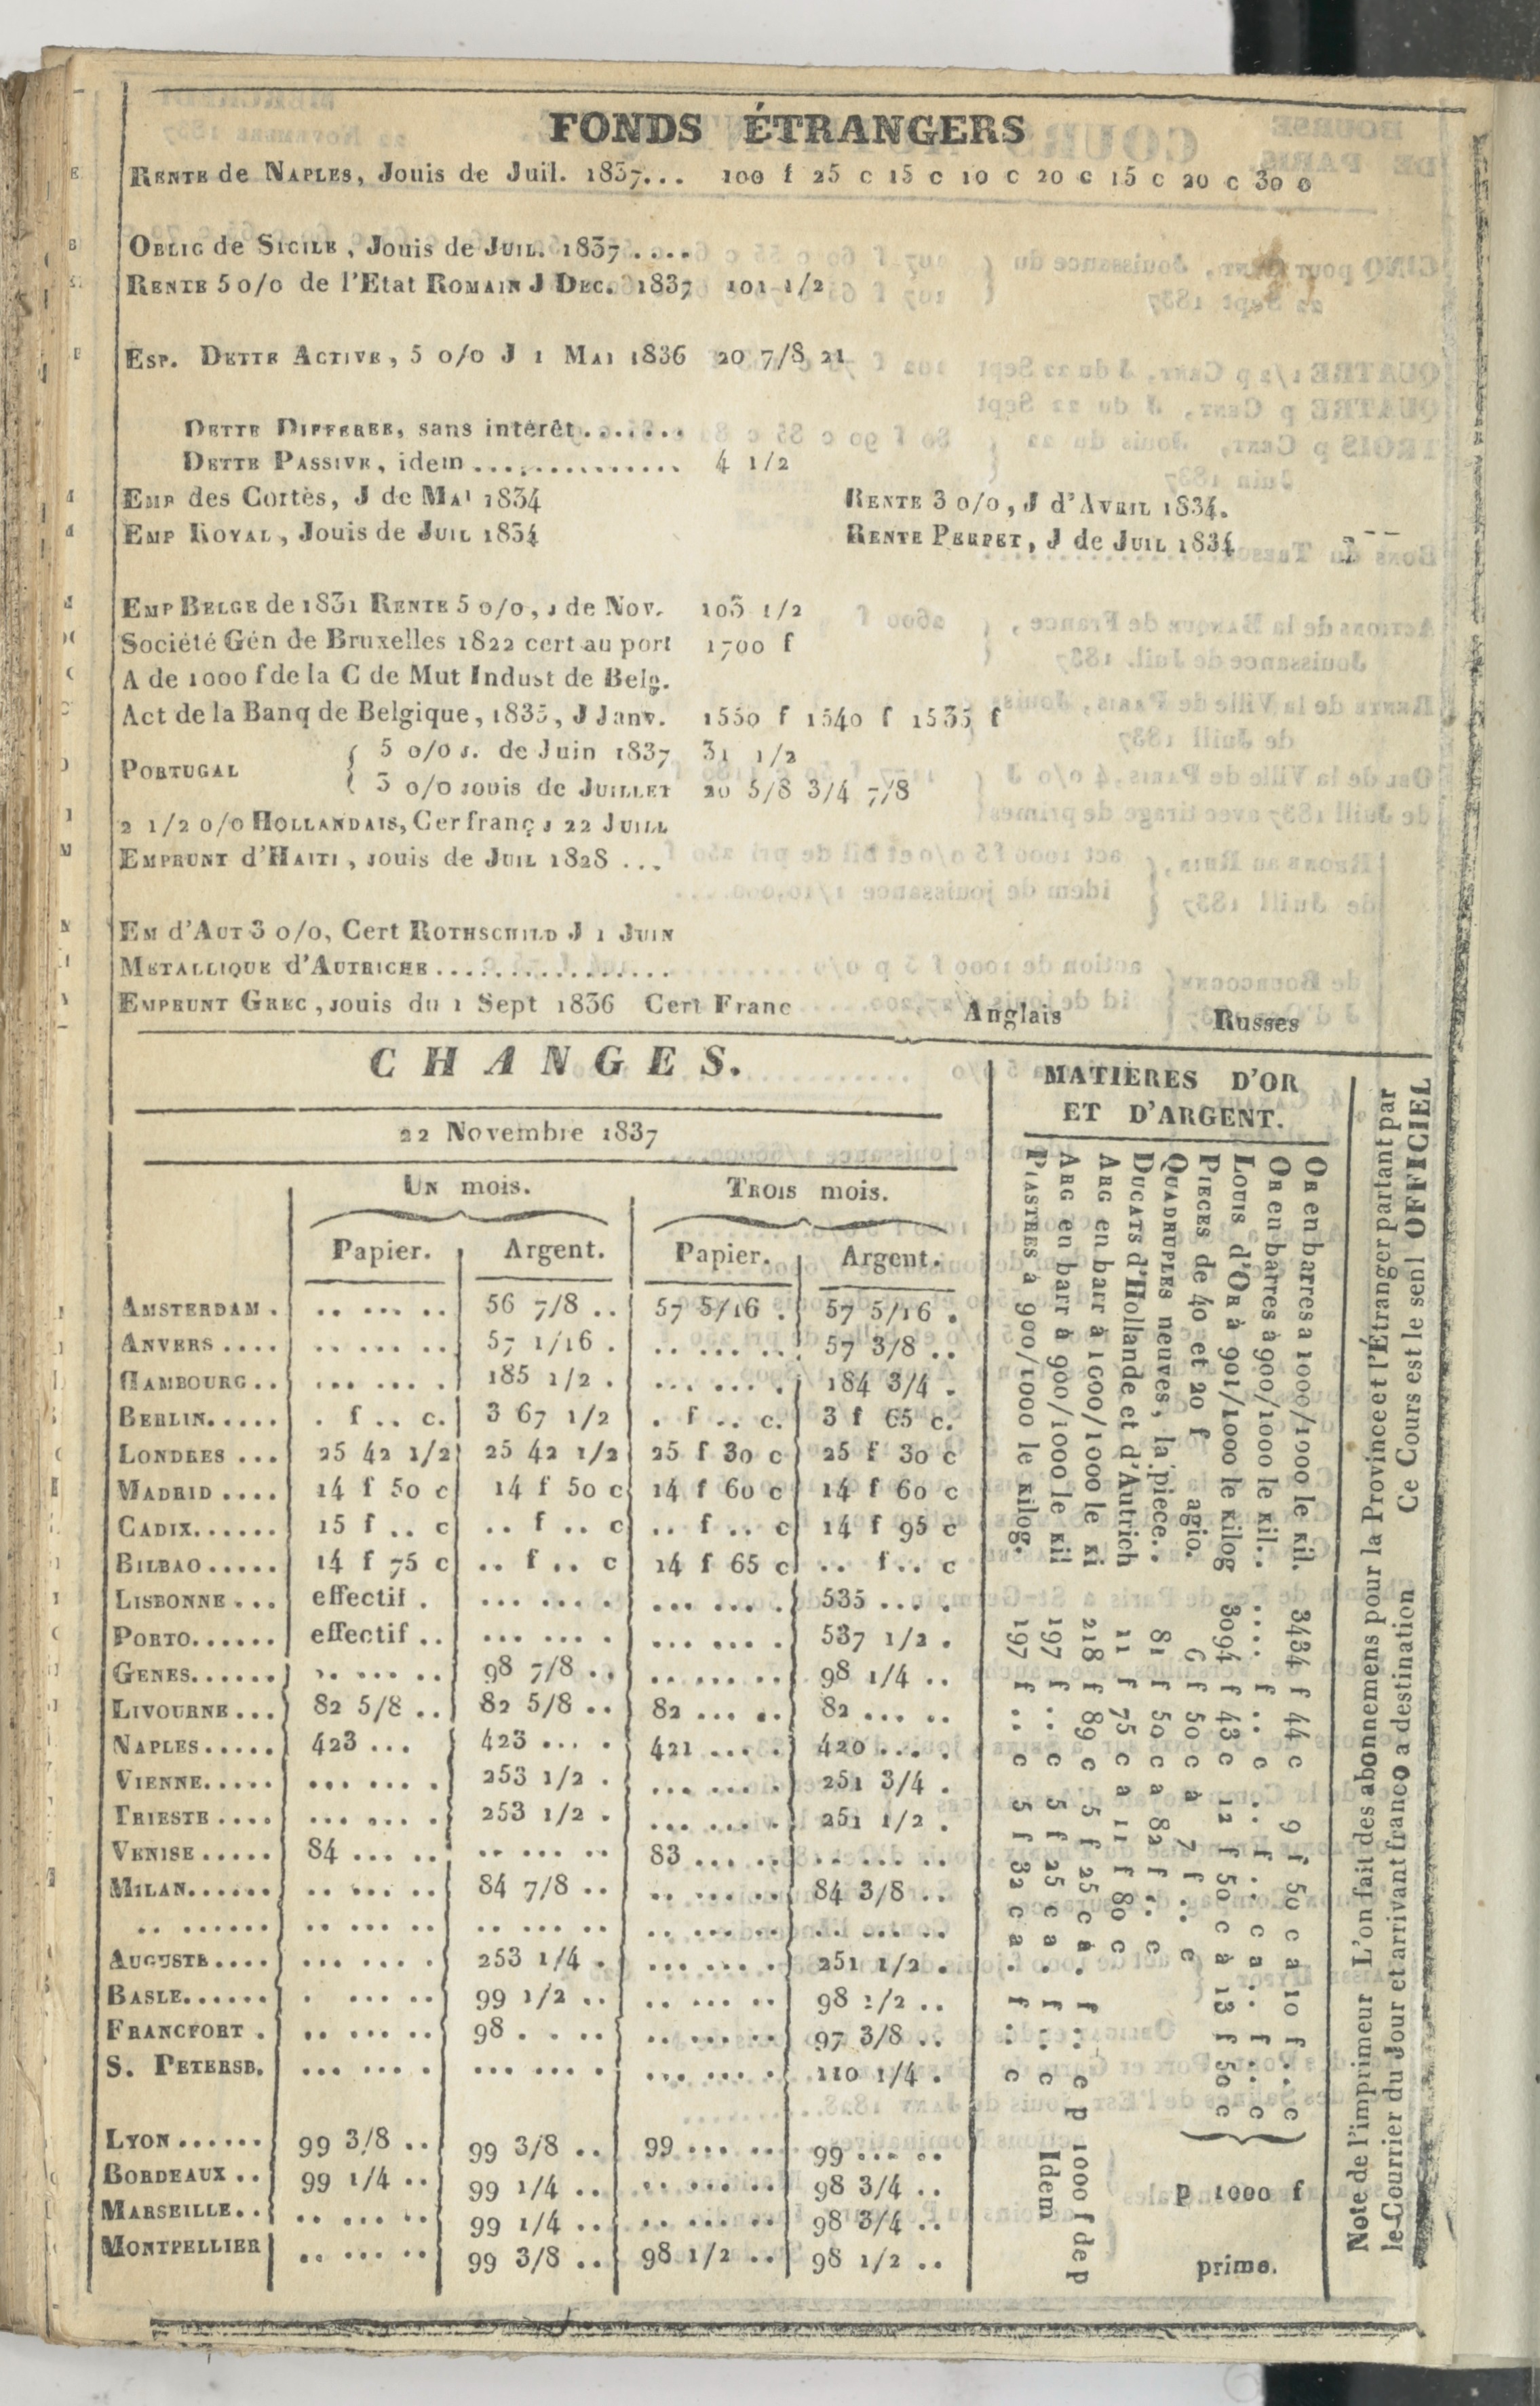 FONDS ÉTRANGERS
RENTE de NAPLES, Jouis de Juil. 1837... 100 f 25 c 15 c 10 c 20 c 15 c 20 c 30 c
OBLIG de SICILE, Jouis de JUIL. 1837....
RENTE 5 0/0 de l'Etat ROMAIN J DEC. 1837 101 1/2
ESP. DETTE ACTIVE, 5 0/0 J 1 MAI 1836 20 7/8 21
DETTE DIFFEREE, sans intérêt.......
DETTE PASSIVE, idem.............. 4 1/2
EMP des Cortès, J de MAI 1834 RENTE 3 0/0, J d'AVRIL 1834.
EMP ROYAL, Jouis de JUIL 1834 RENTE PERPET, J de JUIL 1834
EMP BELGE de 1831 RENTE 5 0/0, J de Nov. 103 1/2
Société Gén de Bruxelles 1822 cert au port 1700 f
A de 1000 f de la C de Mut Indust de Belg.
Act de la Banq de Belgique, 1835, J Janv. 1550 f 1540 f 1535 f
PORTUGAL { 5 0/0 J. de Juin 1837 31 1/2
{ 3 0/0 JOUIS de JUILLET 20 5/8 3/4 7/8
2 1/2 0/0 HOLLANDAIS, Cer franç J 22 JUILL
EMPRUNT d'HAITI, JOUIS de JUIL 1828 ...
EM d'AUT 3 0/0, Cert ROTHSCHILD J 1 JUIN
METALLIQUE d'AUTRICHE................
EMPRUNT GREC, JOUIS du 1 Sept 1836 Cert Franc Anglais Russes
CHANGES.
22 Novembre 1837
UN mois. TROIS mois.
Papier. Argent. Papier. Argent.
AMSTERDAM . .. ... .. 56 7/8 .. 57 5/16 . 57 5/16 .
ANVERS .... .. ... .. 57 1/16 . .. ... .. 57 3/8 ..
HAMBOURG.. ... ... . 185 1/2 . ... ... . 184 3/4 .
BERLIN..... . f .. c. 3 67 1/2 . f .. c. 3 f 65 c.
LONDRES ... 25 42 1/2 25 42 1/2 25 f 30 c 25 f 30 c
MADRID .... 14 f 50 c 14 f 50 c 14 f 60 c 14 f 60 c
CADIX...... 15 f .. c .. f .. c .. f .. c 14 f 95 c
BILBAO ..... 14 f 75 c .. f .. c 14 f 65 c .. f .. c
LISBONNE ... effectif . ... ... . ... ... . 535 ... .
PORTO...... effectif .. ... ... . ... ... . 537 1/2 .
GENES...... .. ... .. 98 7/8 .. .. ... .. 98 1/4 ..
LIVOURNE ... 82 5/8 .. 82 5/8 .. 82 ... .. 82 ... ..
NAPLES..... 423 ... 423 ... . 421 ... . 420 ... .
VIENNE..... ... ... . 253 1/2 . ... ... . 251 3/4 .
TRIESTE .... ... ... . 253 1/2 . ... ... . 251 1/2 .
VENISE ..... 84 ... .. .. ... .. 83 ... .. .. ... ..
MILAN...... .. ... .. 84 7/8 .. .. ... .. 84 3/8 ..
.. ...... .. ... .. .. ... .. .. ... .. .. ... ..
AUGUSTE.... ... ... . 253 1/4 . ... ... . 251 1/2 .
BASLE...... . ... .. 99 1/2 .. .. ... .. 98 1/2 ..
FRANCFORT . .. ... .. 98 . . .. .. ... .. 97 3/8 ..
S. PETERSB. ... ... . ... ... . ... ... . 110 1/4 .
LYON ...... 99 3/8 .. 99 3/8 .. 99 ... .. 99 ... ..
BORDEAUX .. 99 1/4 .. 99 1/4 .. .. ... .. 98 3/4 ..
MARSEILLE.. .. ... .. 99 1/4 .. .. ... .. 98 3/4 ..
MONTPELLIER .. ... .. 99 3/8 .. 98 1/2 .. 98 1/2 ..
MATIÈRES D'OR
ET D'ARGENT.
OR en barres a 1000/1000 le kil. 3434 f 44 c 9 f 50 c a 10 f .. c
OR en barres à 900/1000 le kil.. .... f .. c .. f .. c a .. f .. c
LOUIS d'OR à 901/1000 le kilog 3094 f 43 c 12 f 50 c à 13 f 50 c
PIECES de 40 et 20 f agio. 6 f 50 c à 7 f .. c
QUADRUPLES neuves, la pièce.. 81 f 50 c a 82 f .. c
DUCATS d'Hollande et d'Autrich 11 f 75 c a 11 f 80 c
ARG en barr à 1000/1000 le ki 218 f 89 c 5 f 25 c à . f .. c p 1000 f de p
ARG en barr à 900/1000 le kil 197 f .. c 5 f 25 c a . f .. c Idem
PIASTRES à 900/1000 le kilog. 197 f .. c 5 f 32 c a . f .. c
p 1000 f
prime.
Note de l'imprimeur L'on fait des abonnemens pour la Province et l'Étranger partant par
le Courrier du Jour et arrivant franco a destination Ce Cours est le senl OFFICIEL